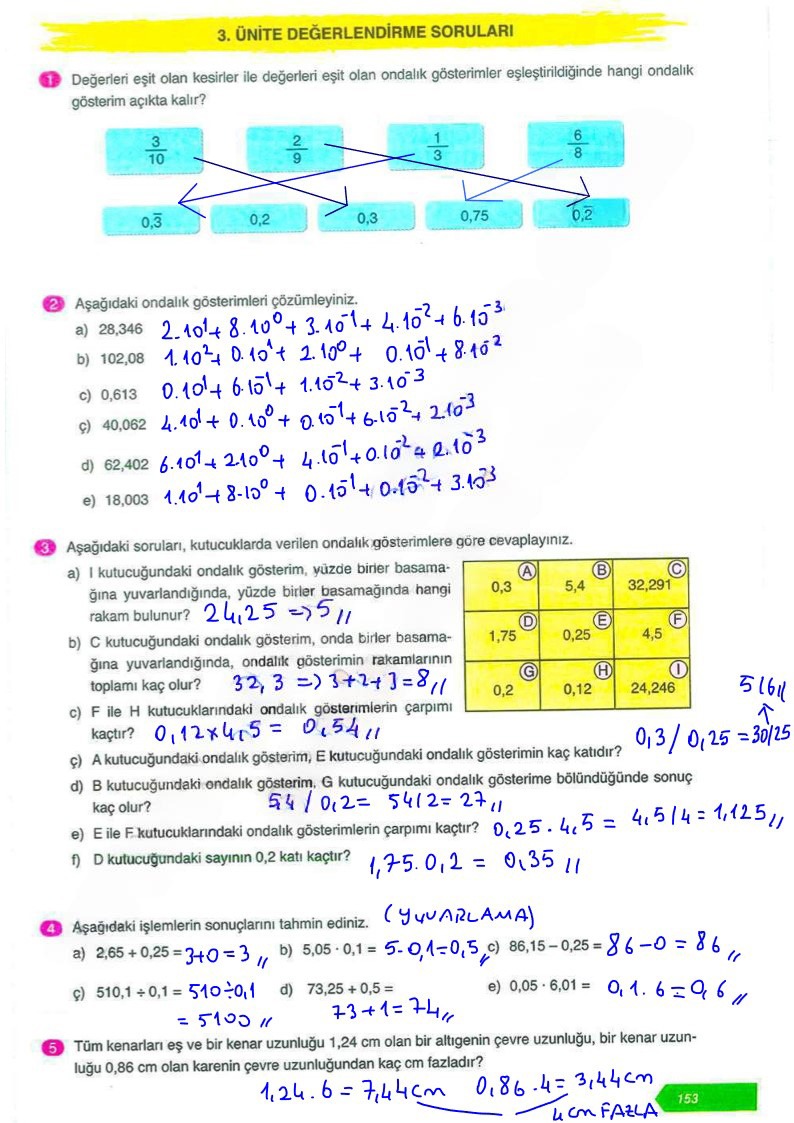 3. ÜNİTE DEĞERLENDİRME SORULARI
1 Değerleri eşit olan kesirler ile değerleri eşit olan ondalık gösterimler eşleştirildiğinde hangi ondalık
gösterim açıkta kalır?
3/10 2/9 1/3 6/8
0,3̅ 0,2 0,3 0,75 0,2̅
2 Aşağıdaki ondalık gösterimleri çözümleyiniz.
a) 28,346 2.10¹+ 8.10⁰+ 3.10⁻¹+ 4.10⁻²+ 6.10⁻³
b) 102,08 1.10²+ 0.10¹+ 2.10⁰+ 0.10⁻¹+ 8.10⁻²
c) 0,613 0.10¹+ 6.10⁻¹+ 1.10⁻²+ 3.10⁻³
ç) 40,062 4.10¹+ 0.10⁰+ 0.10⁻¹+ 6.10⁻²+ 2.10⁻³
d) 62,402 6.10¹+ 2.10⁰+ 4.10⁻¹+ 0.10⁻²+ 2.10⁻³
e) 18,003 1.10¹+ 8.10⁰+ 0.10⁻¹+ 0.10⁻²+ 3.10⁻³
3 Aşağıdaki soruları, kutucuklarda verilen ondalık gösterimlere göre cevaplayınız.
a) I kutucuğundaki ondalık gösterim, yüzde birler basama-
ğına yuvarlandığında, yüzde birler basamağında hangi
rakam bulunur? 24,25 => 5 //
b) C kutucuğundaki ondalık gösterim, onda birler basama-
ğına yuvarlandığında, ondalık gösterimin rakamlarının
toplamı kaç olur? 32,3 => 3+2+3=8 //
c) F ile H kutucuklarındaki ondalık gösterimlerin çarpımı
kaçtır? 0,12x4,5 = 0,54 //
A 0,3 B 5,4 C 32,291
D 1,75 E 0,25 F 4,5
G 0,2 H 0,12 I 24,246
5/6 //
ç) A kutucuğundaki ondalık gösterim, E kutucuğundaki ondalık gösterimin kaç katıdır? 0,3/0,25 = 30/25
d) B kutucuğundaki ondalık gösterim, G kutucuğundaki ondalık gösterime bölündüğünde sonuç
kaç olur? 54 / 0,2 = 54/2 = 27 //
e) E ile F kutucuklarındaki ondalık gösterimlerin çarpımı kaçtır? 0,25 . 4,5 = 4,5/4 = 1,125 //
f) D kutucuğundaki sayının 0,2 katı kaçtır? 1,75. 0,2 = 0,35 //
4 Aşağıdaki işlemlerin sonuçlarını tahmin ediniz. (YUVARLAMA)
a) 2,65 + 0,25 = 3+0=3 // b) 5,05 · 0,1 = 5.0,1=0,5 // c) 86,15 – 0,25 = 86–0 = 86 //
ç) 510,1 ÷ 0,1 = 510÷0,1 d) 73,25 + 0,5 = e) 0,05 · 6,01 = 0,1. 6=0,6 //
= 5100 // 73+1=74 //
5 Tüm kenarları eş ve bir kenar uzunluğu 1,24 cm olan bir altıgenin çevre uzunluğu, bir kenar uzun-
luğu 0,86 cm olan karenin çevre uzunluğundan kaç cm fazladır?
1,24 . 6 = 7,44 cm 0,86 .4= 3,44 cm
4 cm FAZLA
153